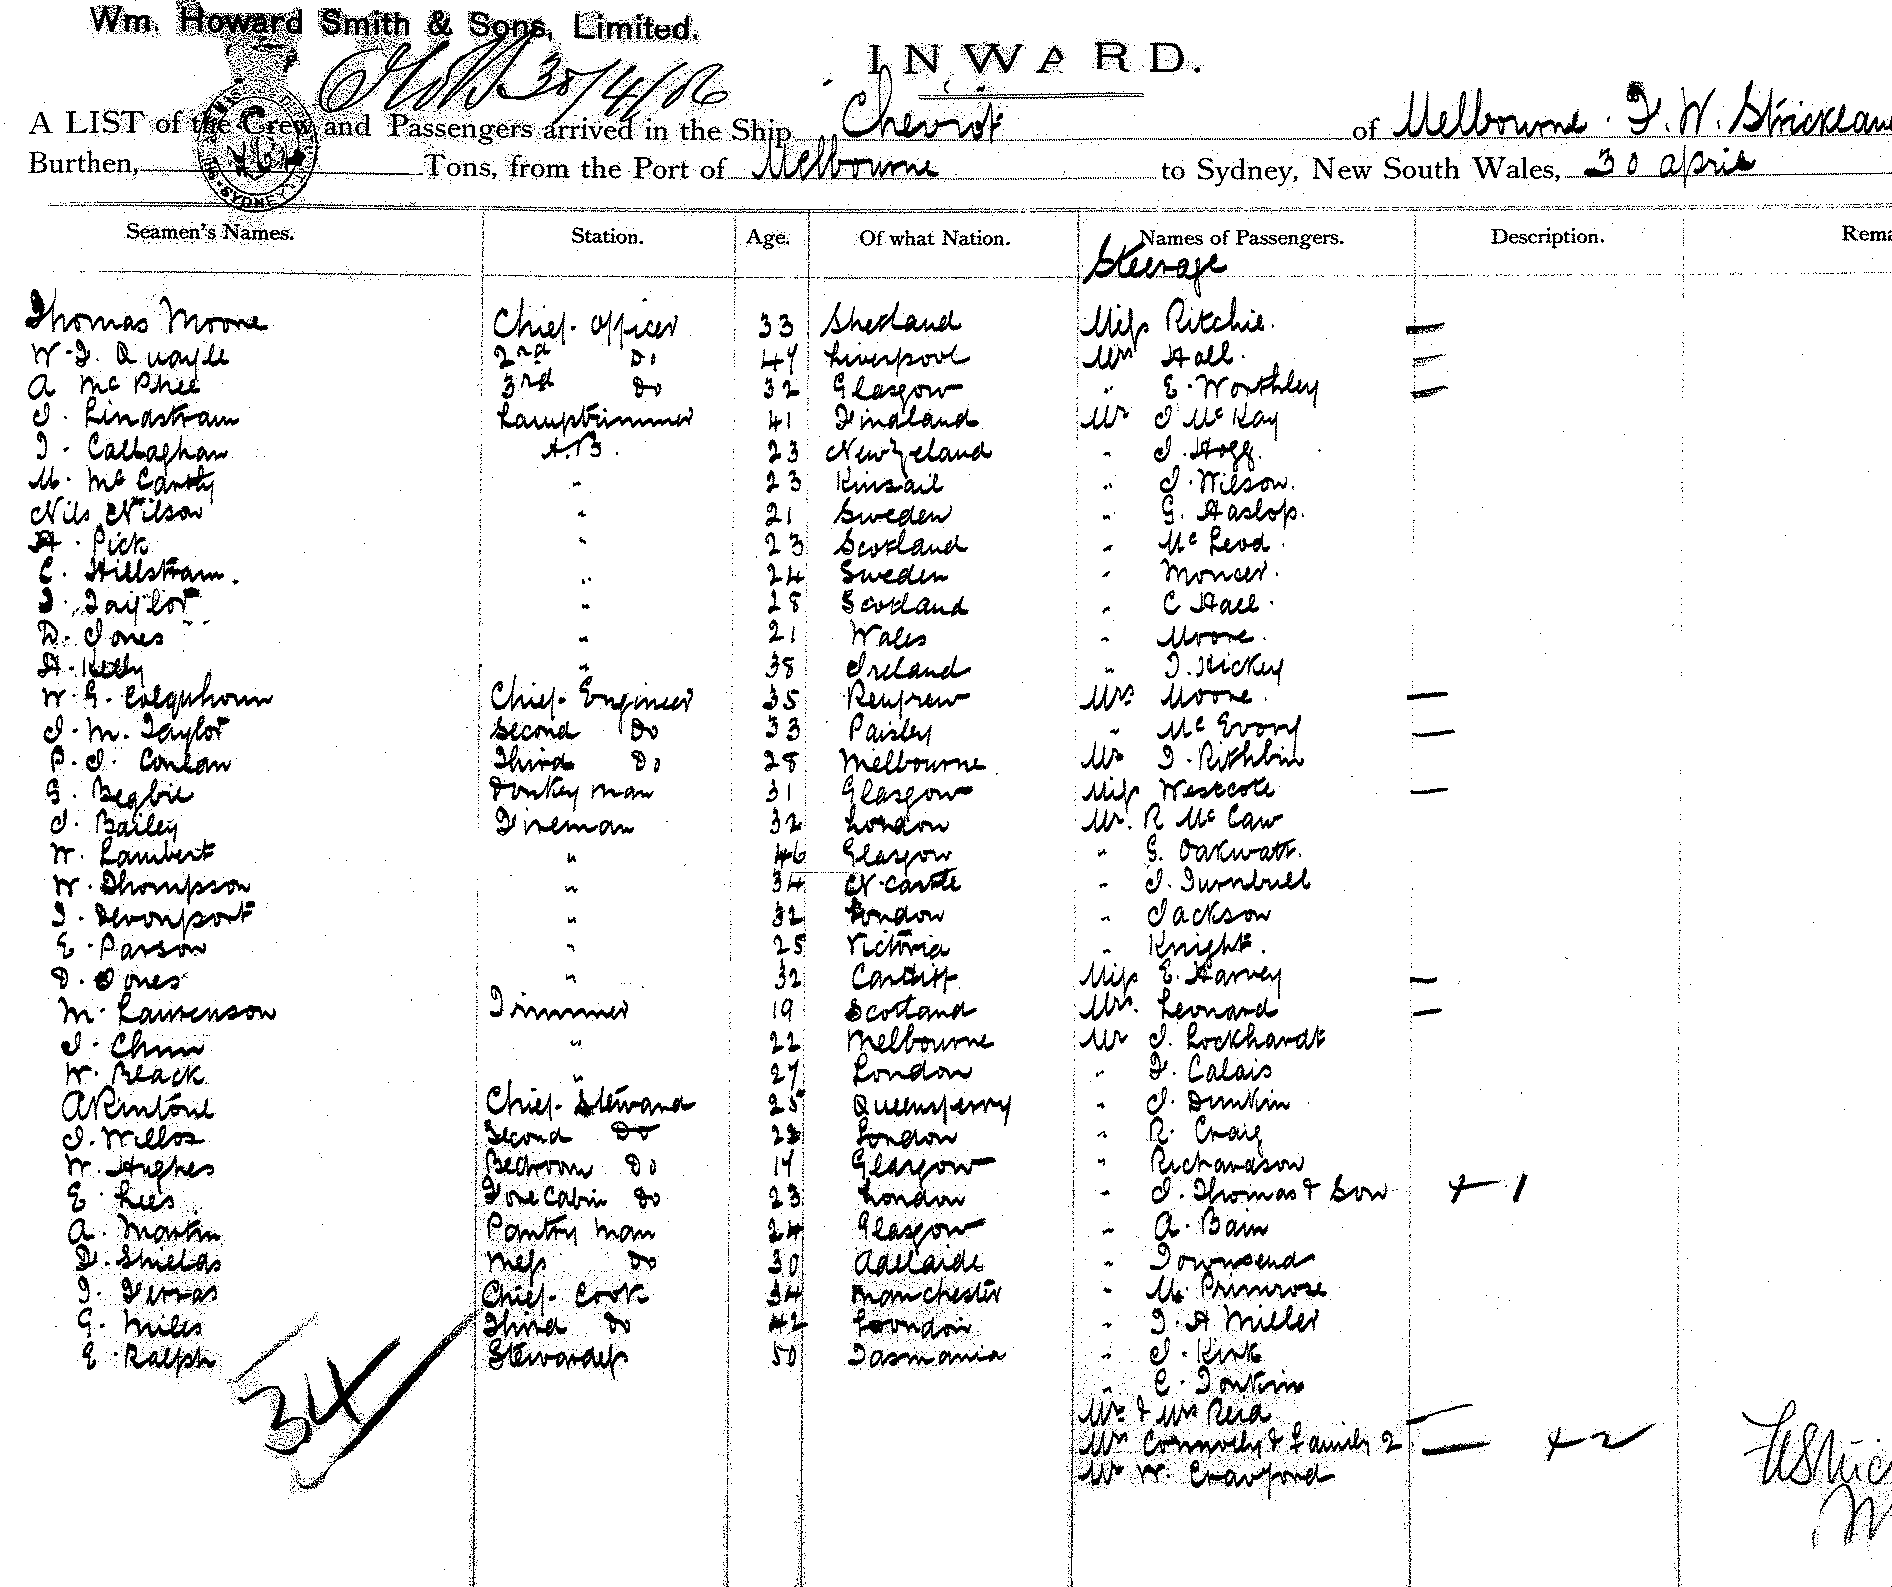 Wm. Howard Smith & Sons, Limited.
30/4/06
INWARD.
A LIST of the Crew and Passengers arrived in the Ship Cheviot of Melbourne. F. W. Strickland
Burthen, Tons, from the Port of Melbourne to Sydney, New South Wales, 30 april
Seamen's Names. Station. Age. Of what Nation. Names of Passengers. Description. Rema
Steerage
Thomas Moore Chief Officer 33 Shetland Miss Ritchie.
W. F. Quayle 2nd Do 47 Liverpool Mrs Hall.
A McPhee 3rd Do 32 Glasgow " E. Worthley
J. Lindstram Lamptrimmer 41 Findland Mr J McKay
T. Callaghan A.B. 23 New Zeland " J. Hogg.
M. McCarty " 23 Kinsail " J. Wilson.
Nils Nilson " 21 Sweden " G. Haslop.
A. Pick " 23 Scotland " McLeod.
C. Hillstram. " 24 Sweden " Moncer.
J. Taylor " 28 Scotland " C Hall.
D. Jones " 21 Wales " Moore.
A. Kelly " 38 Ireland " T. Hickey
W. G. Colquhoun Chief Engineer 35 Renfrew Mrs. Moore.
J. M. Taylor Second Do 33 Paisley " McEvory
P. J. Conlan Third Do 28 Melbourne Mr T. Rithbin
G. Begbie Donkey man 31 Glasgow Miss Westcote
J. Bailey Fireman 32 London Mr. R McCaw
W. Lambert " 46 Glasgow " G. Oakwatt.
W. Thompson " 34 N. Castle " J. Turnbull
T. Devonport " 32 London " Jackson
E. Parson " 25 Victoria " Knight.
D. Jones " 32 Cardiff Miss E. Harvey
M. Laurenson Trimmer 19 Scotland Mrs. Leonard
J. Chun " 22 Melbourne Mr J. Lockhardt
W. Black " 27 London " F. Calais
A Rintoul Chief Steward 25 Queensferry " J. Dunkin
J. Willox Second Do 28 London " R. Craig
W. Hughes Bedroom Do 17 Glasgow " Richardson
E. Lees Fore Cabin Do 23 London " J. Thomas & Son + 1
A. Martin Pantry man 24 Glasgow " A. Bain
D. Shields Mess Do 30 Adelaide " Townsend
T. Ferras Chief Cook 34 Manchester " M. Primrose
G. Miles Third Do 42 London " T. A Miller
E. Ralph Stewardess 50 Tasmania " J. Kirk
" C. Tonkin
34 Mr & Mrs Reid
Mrs Connolly & family 2 + 2
Mr W. Crawford